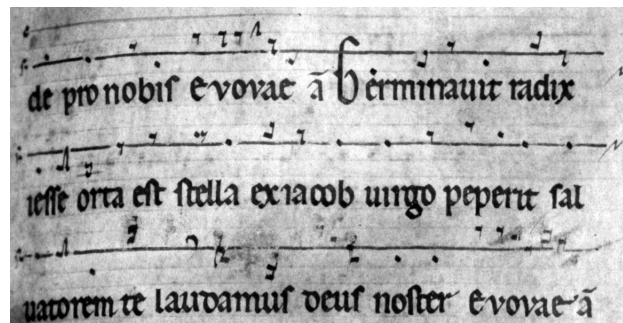 de pro nobis Evovae ā Germinauit radix
iesse orta est stella ex iacob uirgo peperit sal
uatorem te laudamus deus noster Evovae ā